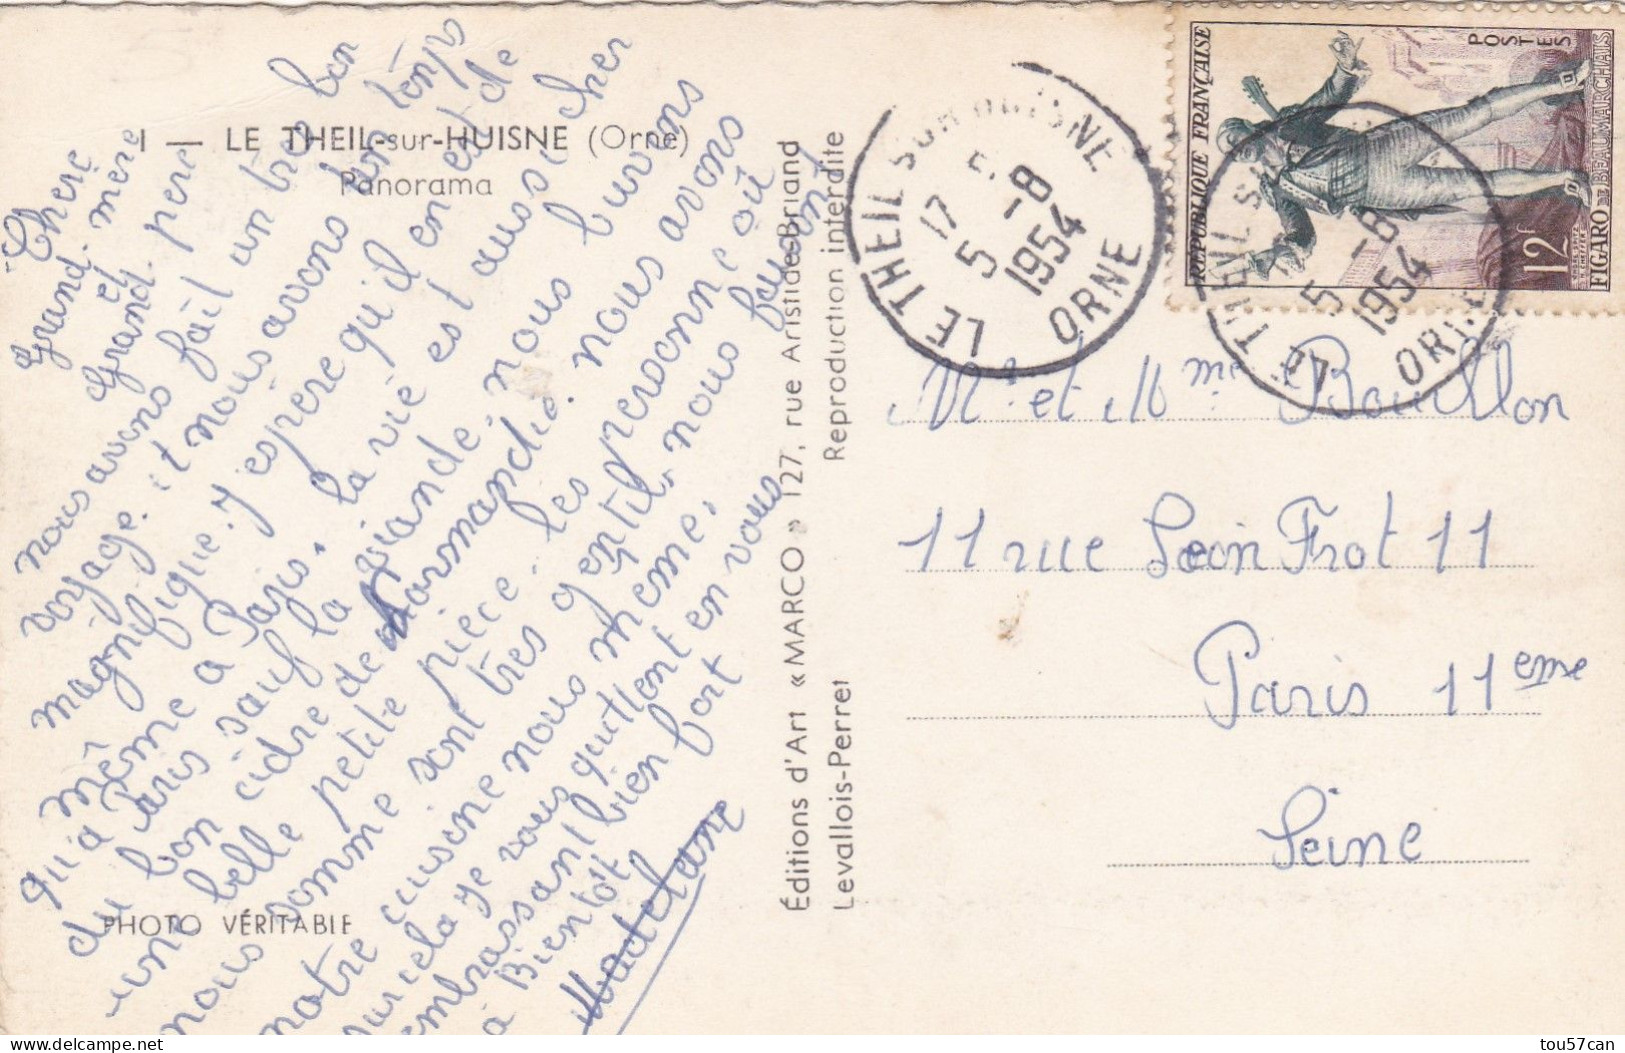 1 — LE THEIL-sur-HUISNE (Orne)
Panorama
Chere
Grand. mere
et
Grand. pere
nous avons fait un tres bon
voyage. et nous avons un temps
magnifique. j'espère qu'il en est de
même a Paris. la vie est aussi cher
qu'a Paris sauf la viande. nous buvons
du bon cidre de Normandie. nous avons
une belle petite pièce. les personne où
nous somme sont tres gentil. nous faison
notre cuisine nous meme.
sur cela je vous quittent en vous
embrassant bien fort
a Bientôt
PHOTO VÉRITABLE
Éditions d'Art « MARCO » 127, rue Aristide-Briand
Levallois-Perret Reproduction interdite
LE THEIL SUR HUISNE
17 H
5 -8
1954
ORNE
RÉPUBLIQUE FRANÇAISE
POSTES
12F
FIGARO DE BEAUMARCHAIS
LE THEIL S
5 -8
1954
ORNE
Mr et Mme Bouillon
11 rue Leon Frot 11
Paris 11eme
Seine
tou57can